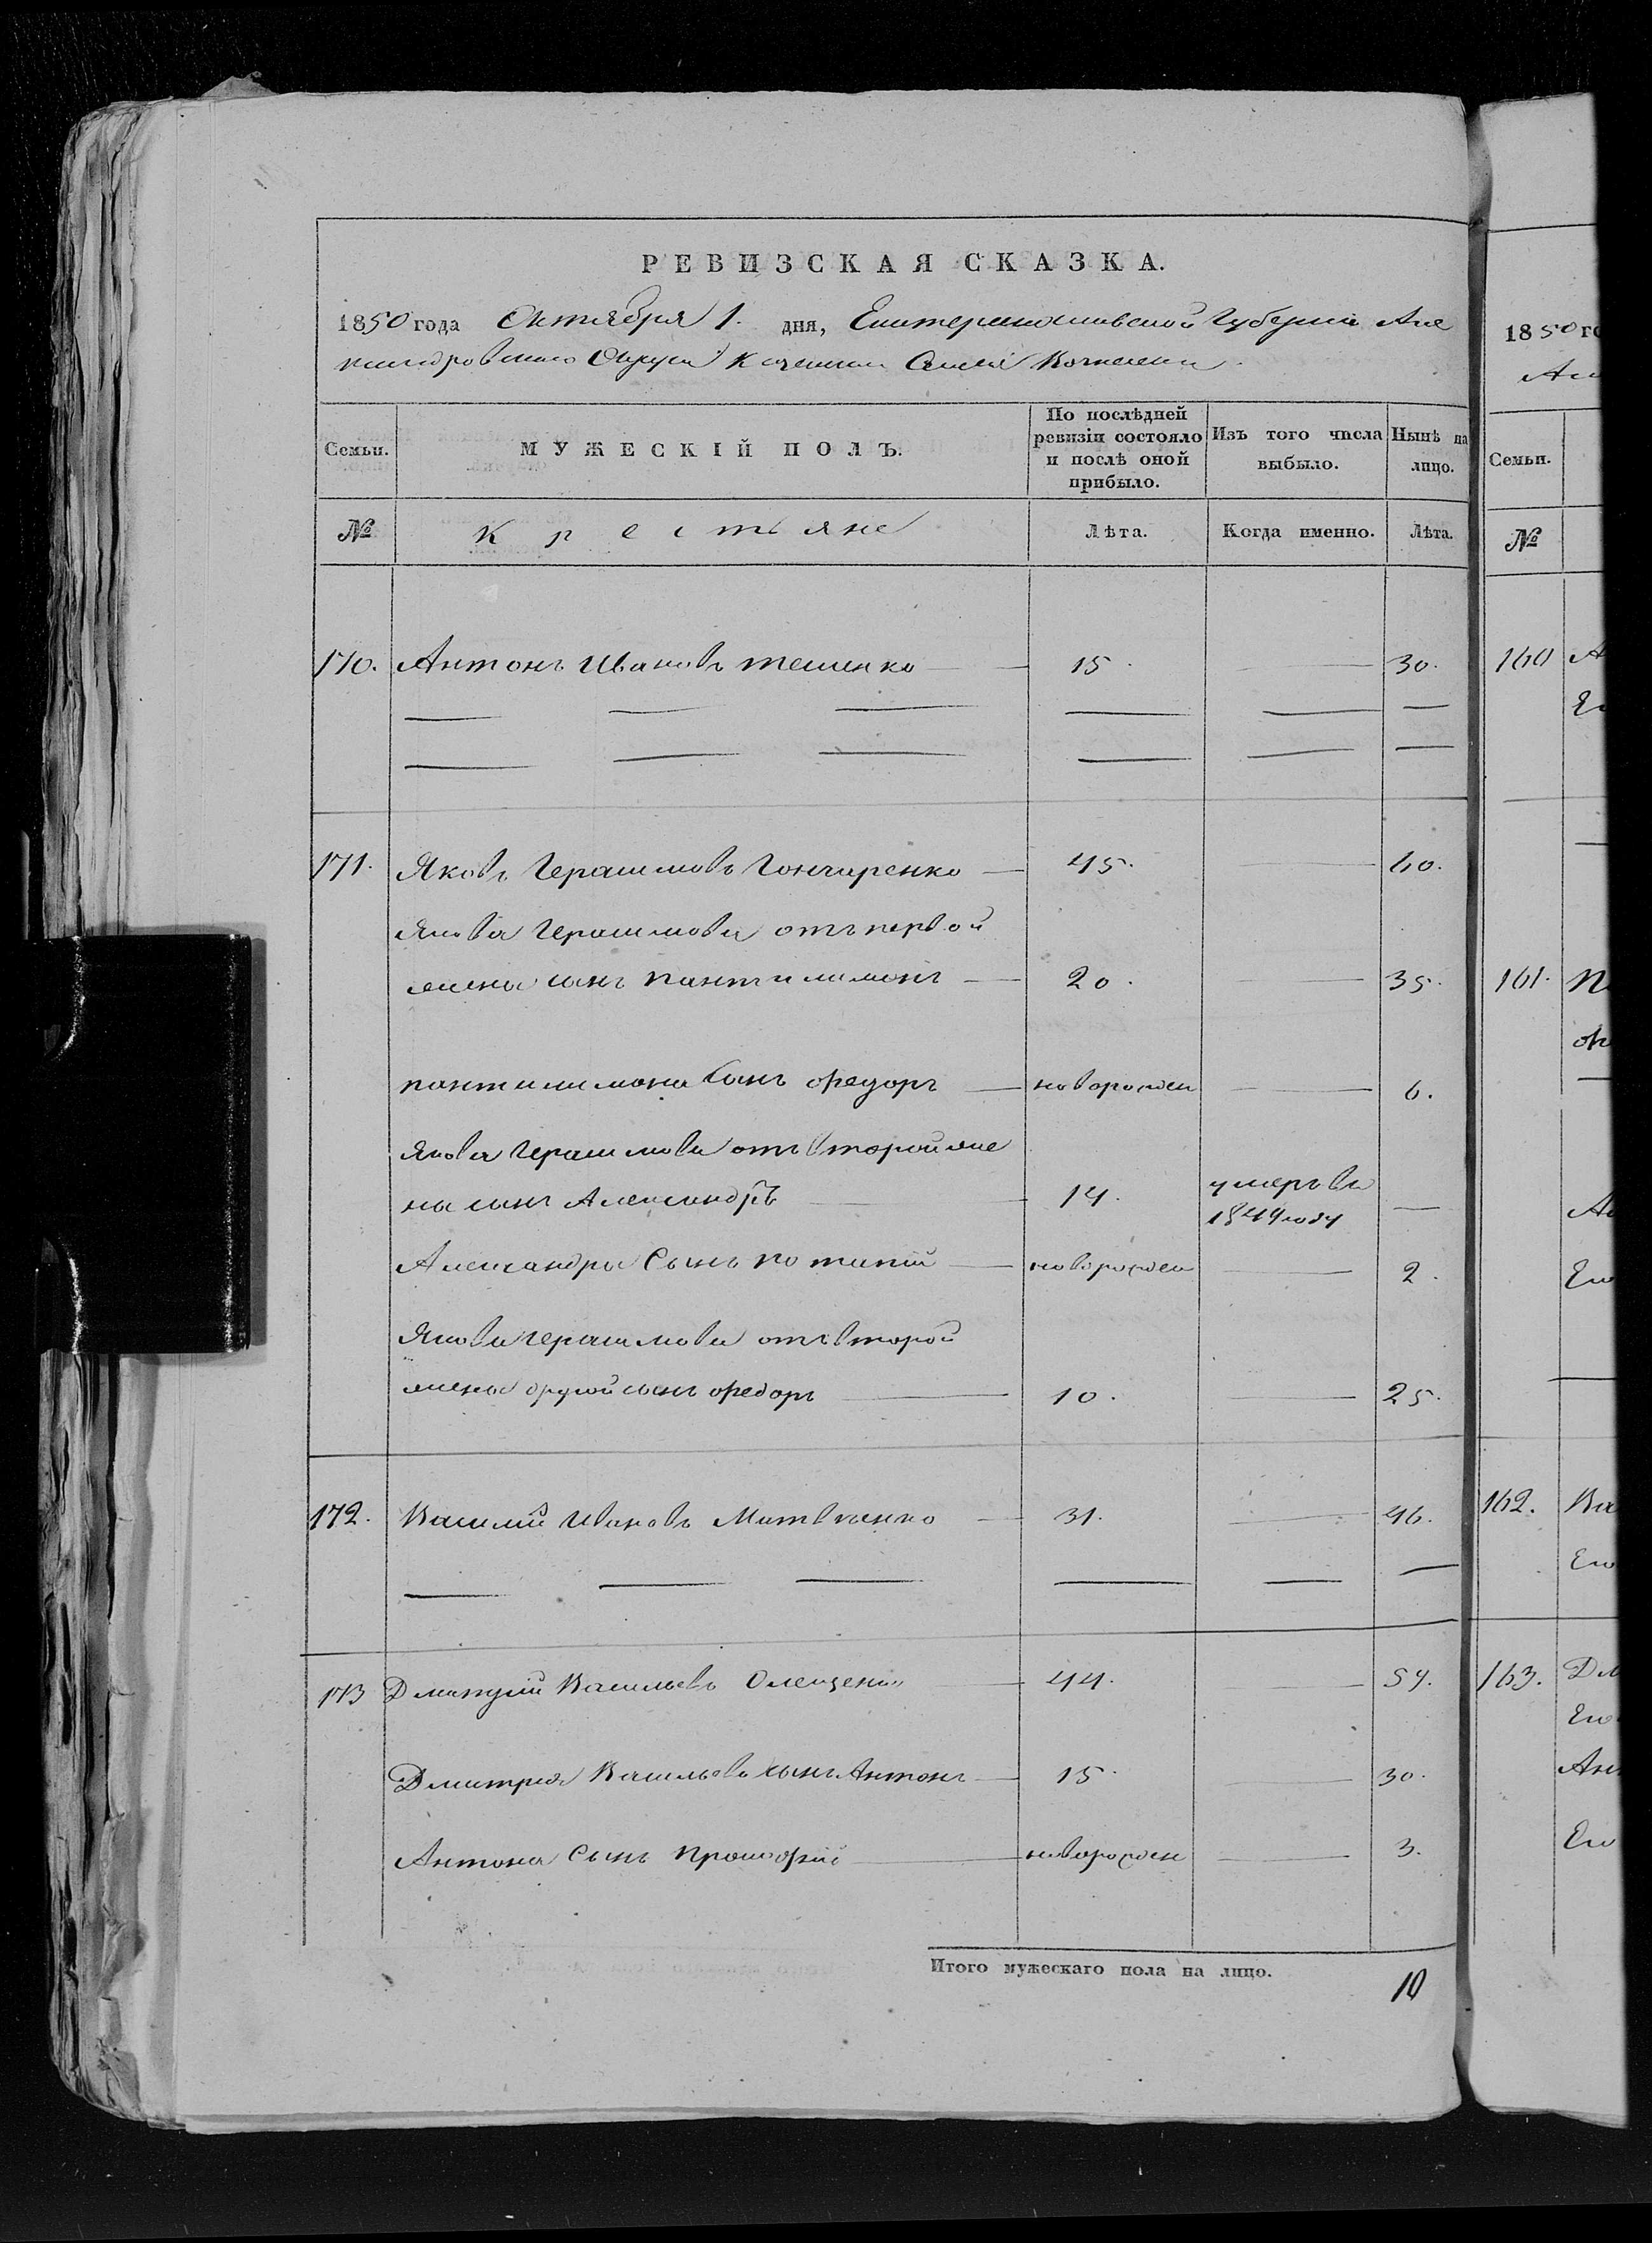 РЕВИЗСКАЯ СКАЗКА.
1850 года Октября 1. дня, Екатеринославской Губернiи Але
ксандровскаго Округа Казенного Селенiя
Семьи. МУЖЕСКIЙ ПОЛЪ. По послѣдней ревизiи состояло и послѣ оной прибыло. Изъ того числа выбыло. Нынѣ на лицо.
№ Крестьяне Лѣта. Когда именно. Лѣта.
170. Антонъ Ивановъ 15. — 30.
171. Яковъ Герасимовъ Гончаренко — 45. — 60.
Якова Герасимова отъ первой
жены сынъ Пантилимонъ — 20. — 35.
Пантилимона Сынъ Федоръ — новорожден — 6.
Якова Герасимова отъ второй же
ны сынъ Александръ — 14. умеръ въ 1849 году —
Александра Сынъ Потапiй — новорожден — 2.
Якова Герасимова отъ второй
жены другой сынъ Федоръ — 10. — 25.
172. Василiй Ивановъ — 31. — 46.
173 Дмитрiй Васильевъ — 44. — 59.
Дмитрiя Васильева сынъ Антонъ — 15. — 30.
Антона Сынъ Прокофiй — новорожден — 3.
Итого мужескаго пола на лицо. 10
1850 го
Семьи.
№
160
161.
162. Ва
Его
163. Дм
Его
Ант
Его